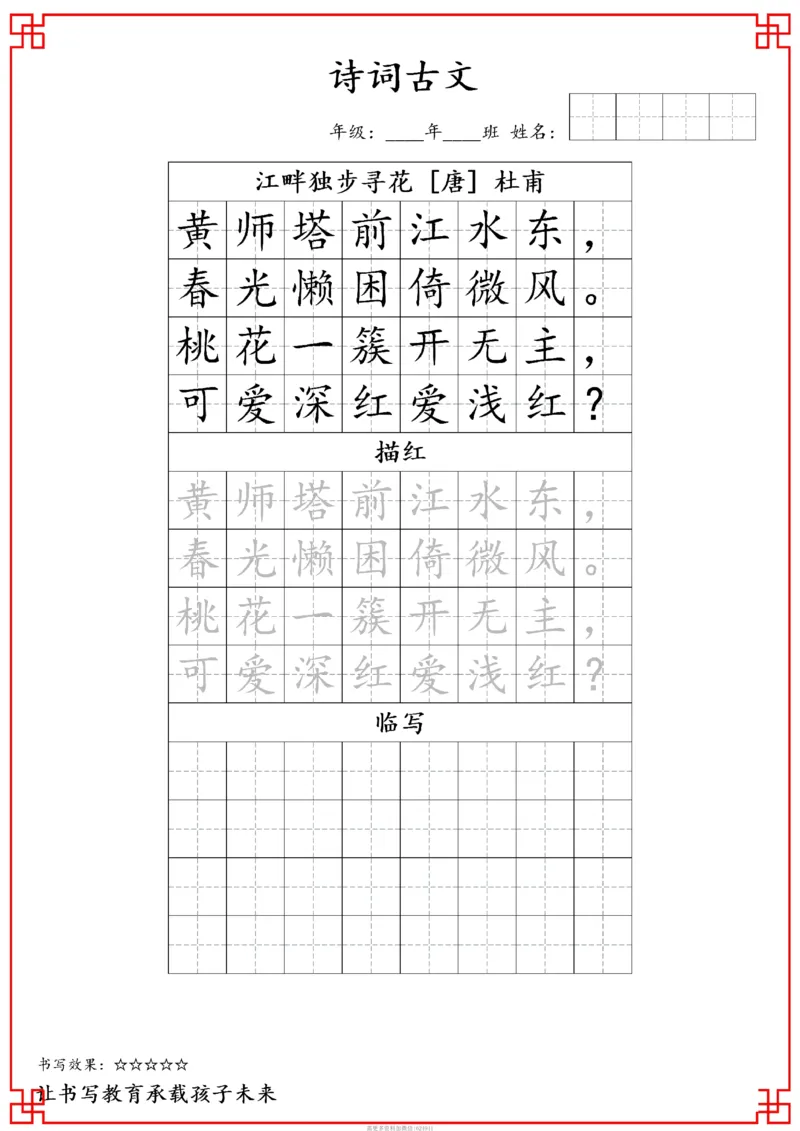 诗词古文
年级：____年____班 姓名：
江畔独步寻花 [唐] 杜甫
黄师塔前江水东，
春光懒困倚微风。
桃花一簇开无主，
可爱深红爱浅红？
描红
黄师塔前江水东，
春光懒困倚微风。
桃花一簇开无主，
可爱深红爱浅红？
临写
书写效果：☆☆☆☆☆
让书写教育承载孩子未来